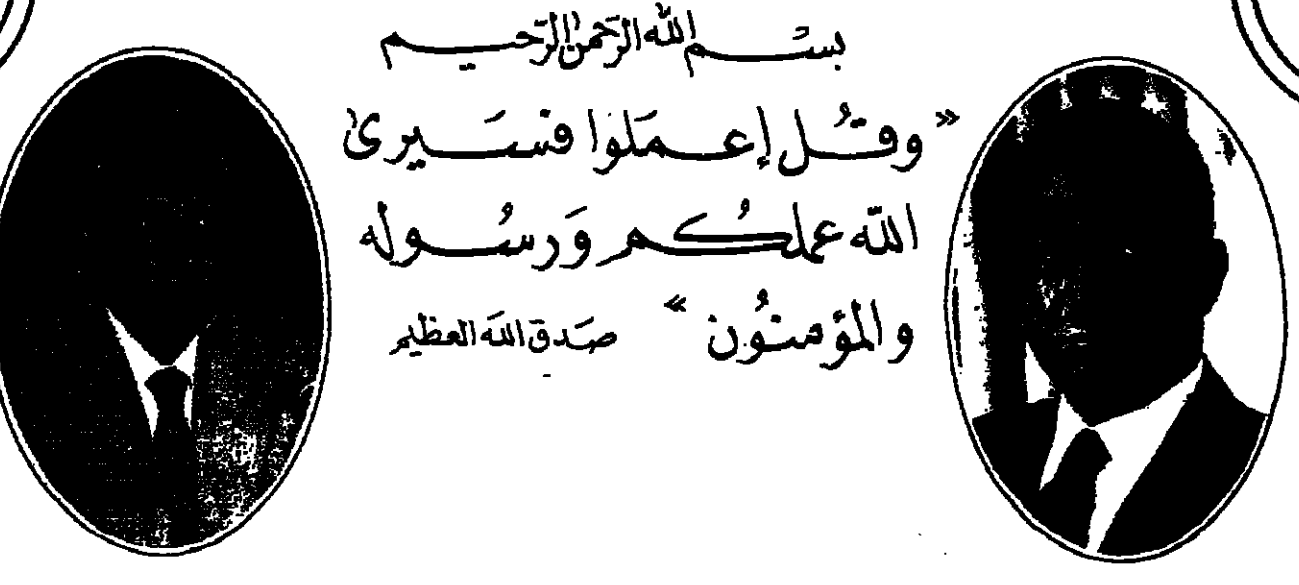 بسم الله الرحمن الرحيم
« وقُل إعمَلوا فسَيرى
الله عملكُم وَرسُوله
والمؤمنُون » صَدق الله العظيم